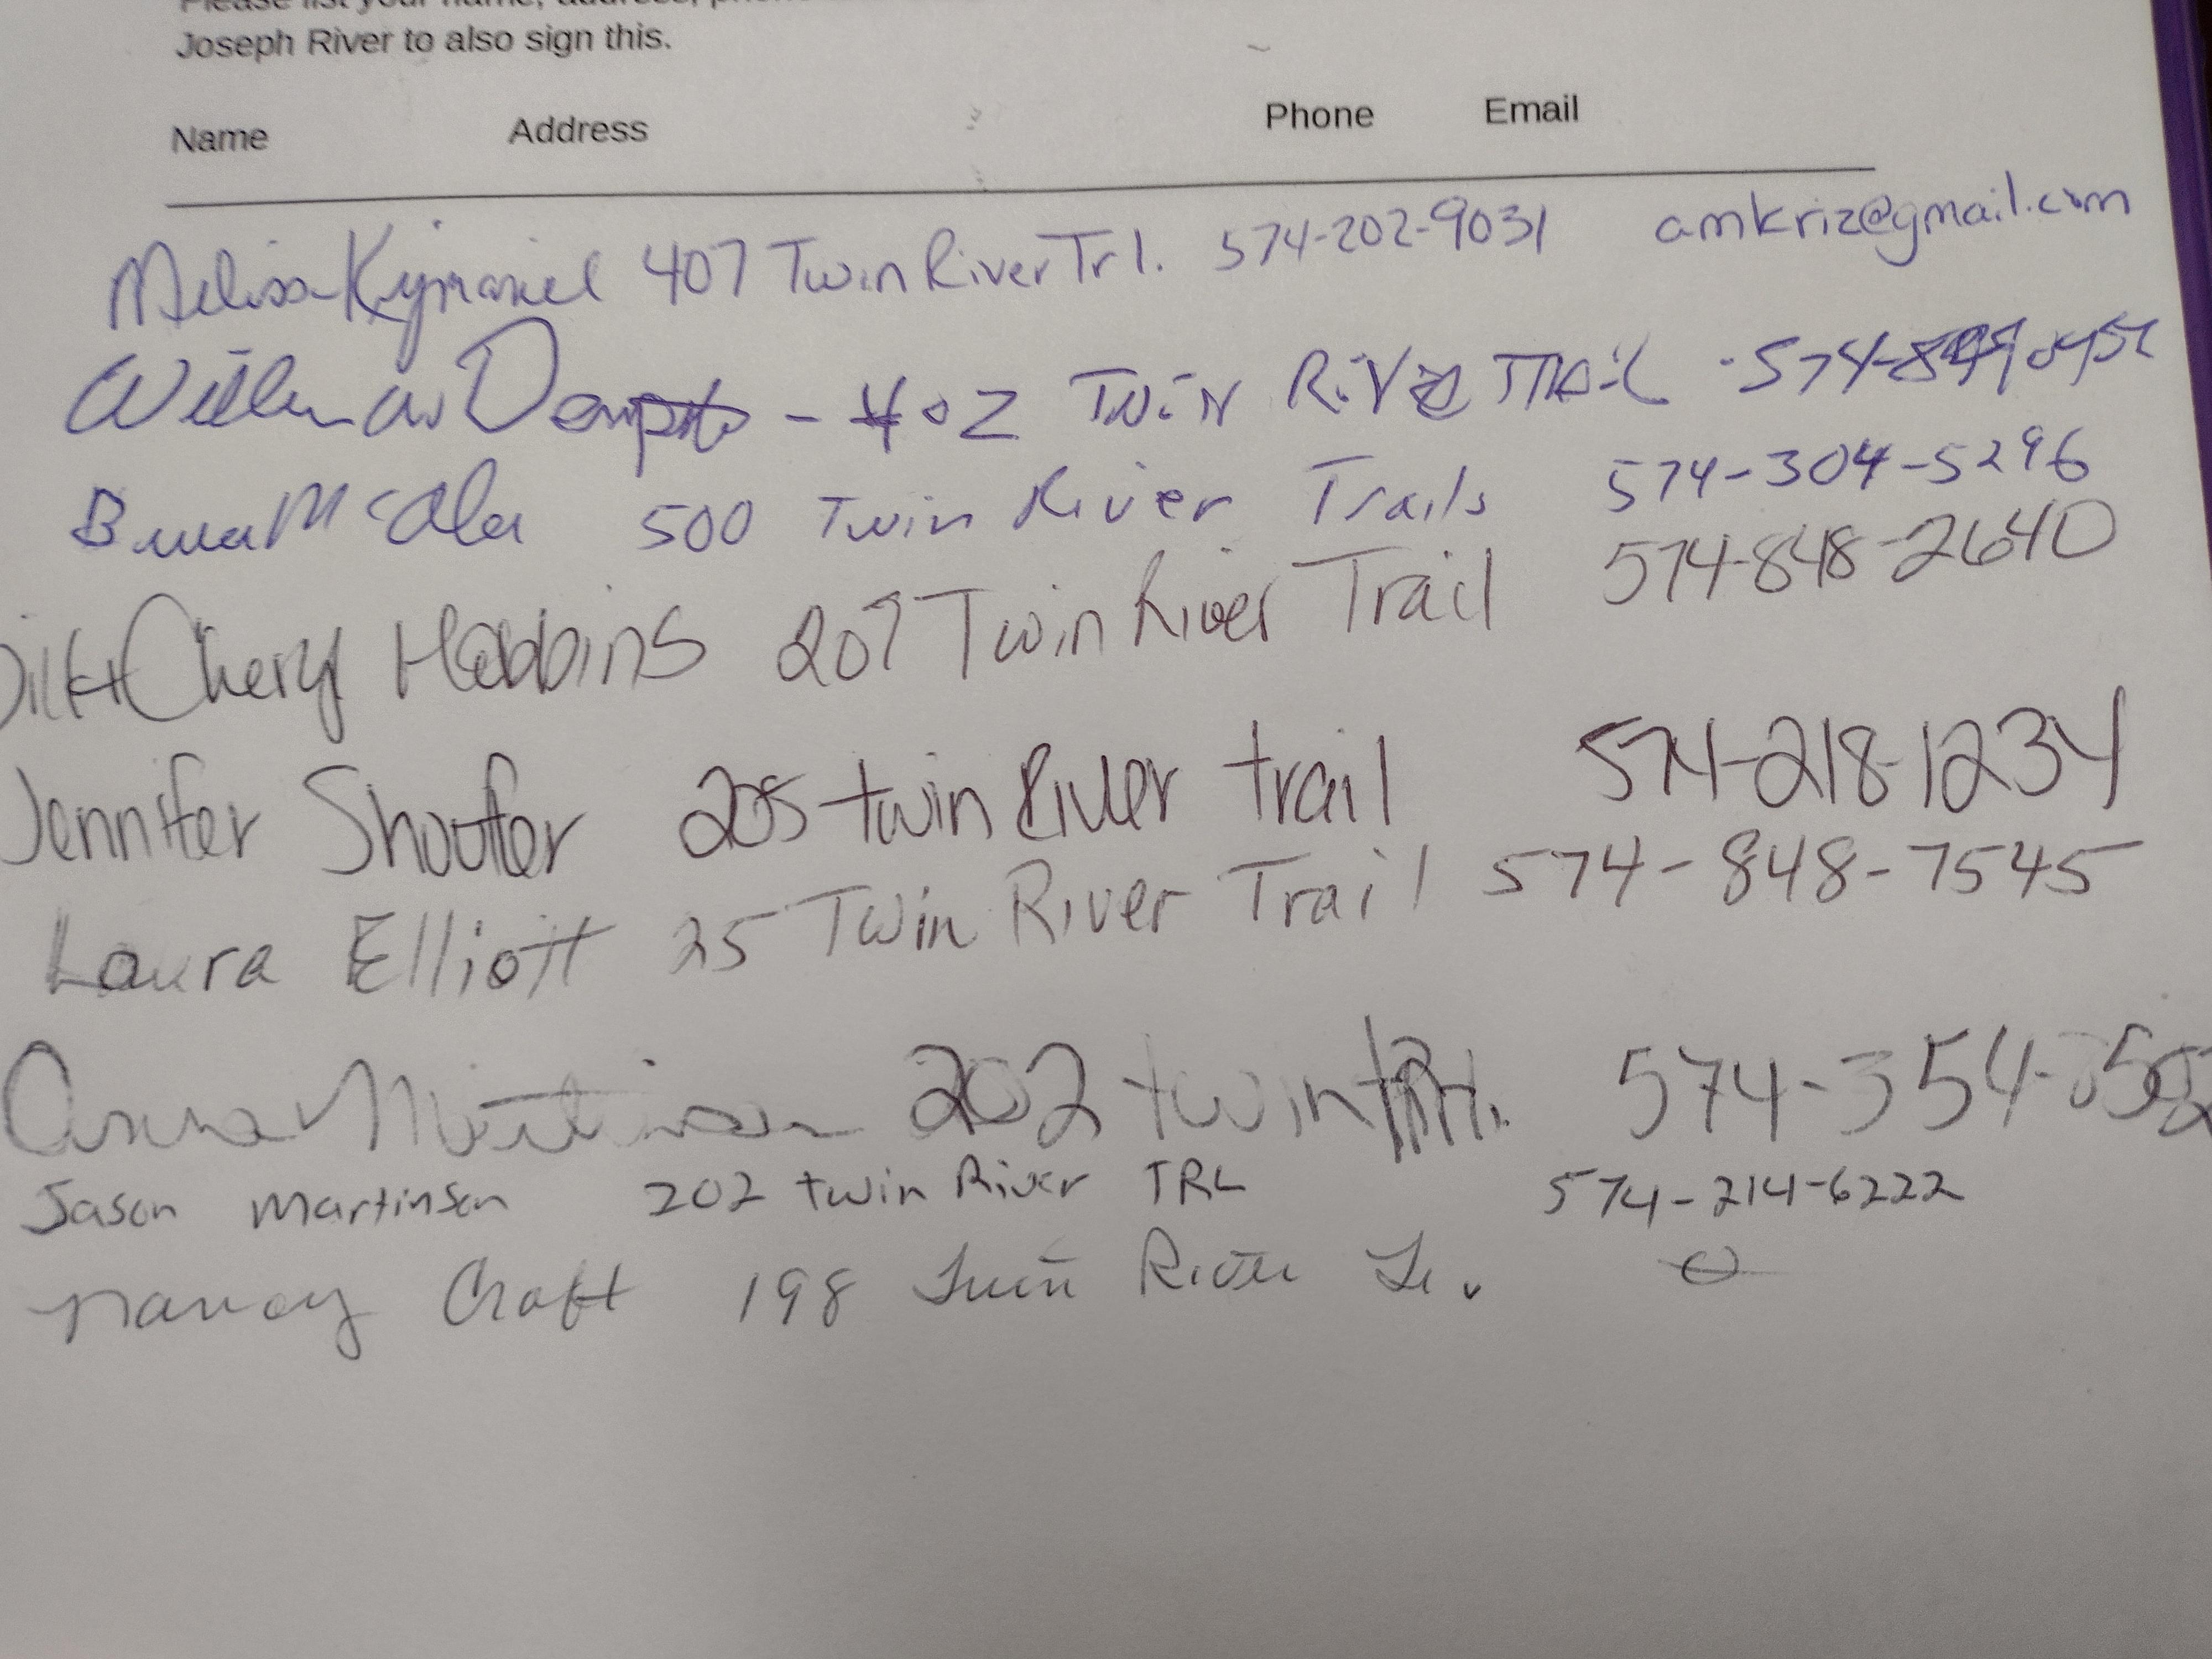 Please list your name, address,
Joseph River to also sign this.
Name Address Phone Email
Melissa 407 Twin River Trl. 574-202-9031 amkriz@gmail.com
402 Twin River Trail 574-
500 Twin River Trails 574-304-5296
Cheryl 207 Twin River Trail 574-848-2640
Jennifer 205 twin River trail 574-218-1234
Laura Elliott 25 Twin River Trail 574-848-7545
202 twin 574-354-
Jason Martinson 202 twin River TRL 574-214-6222
nancy Craft 198 Twin River Tr.